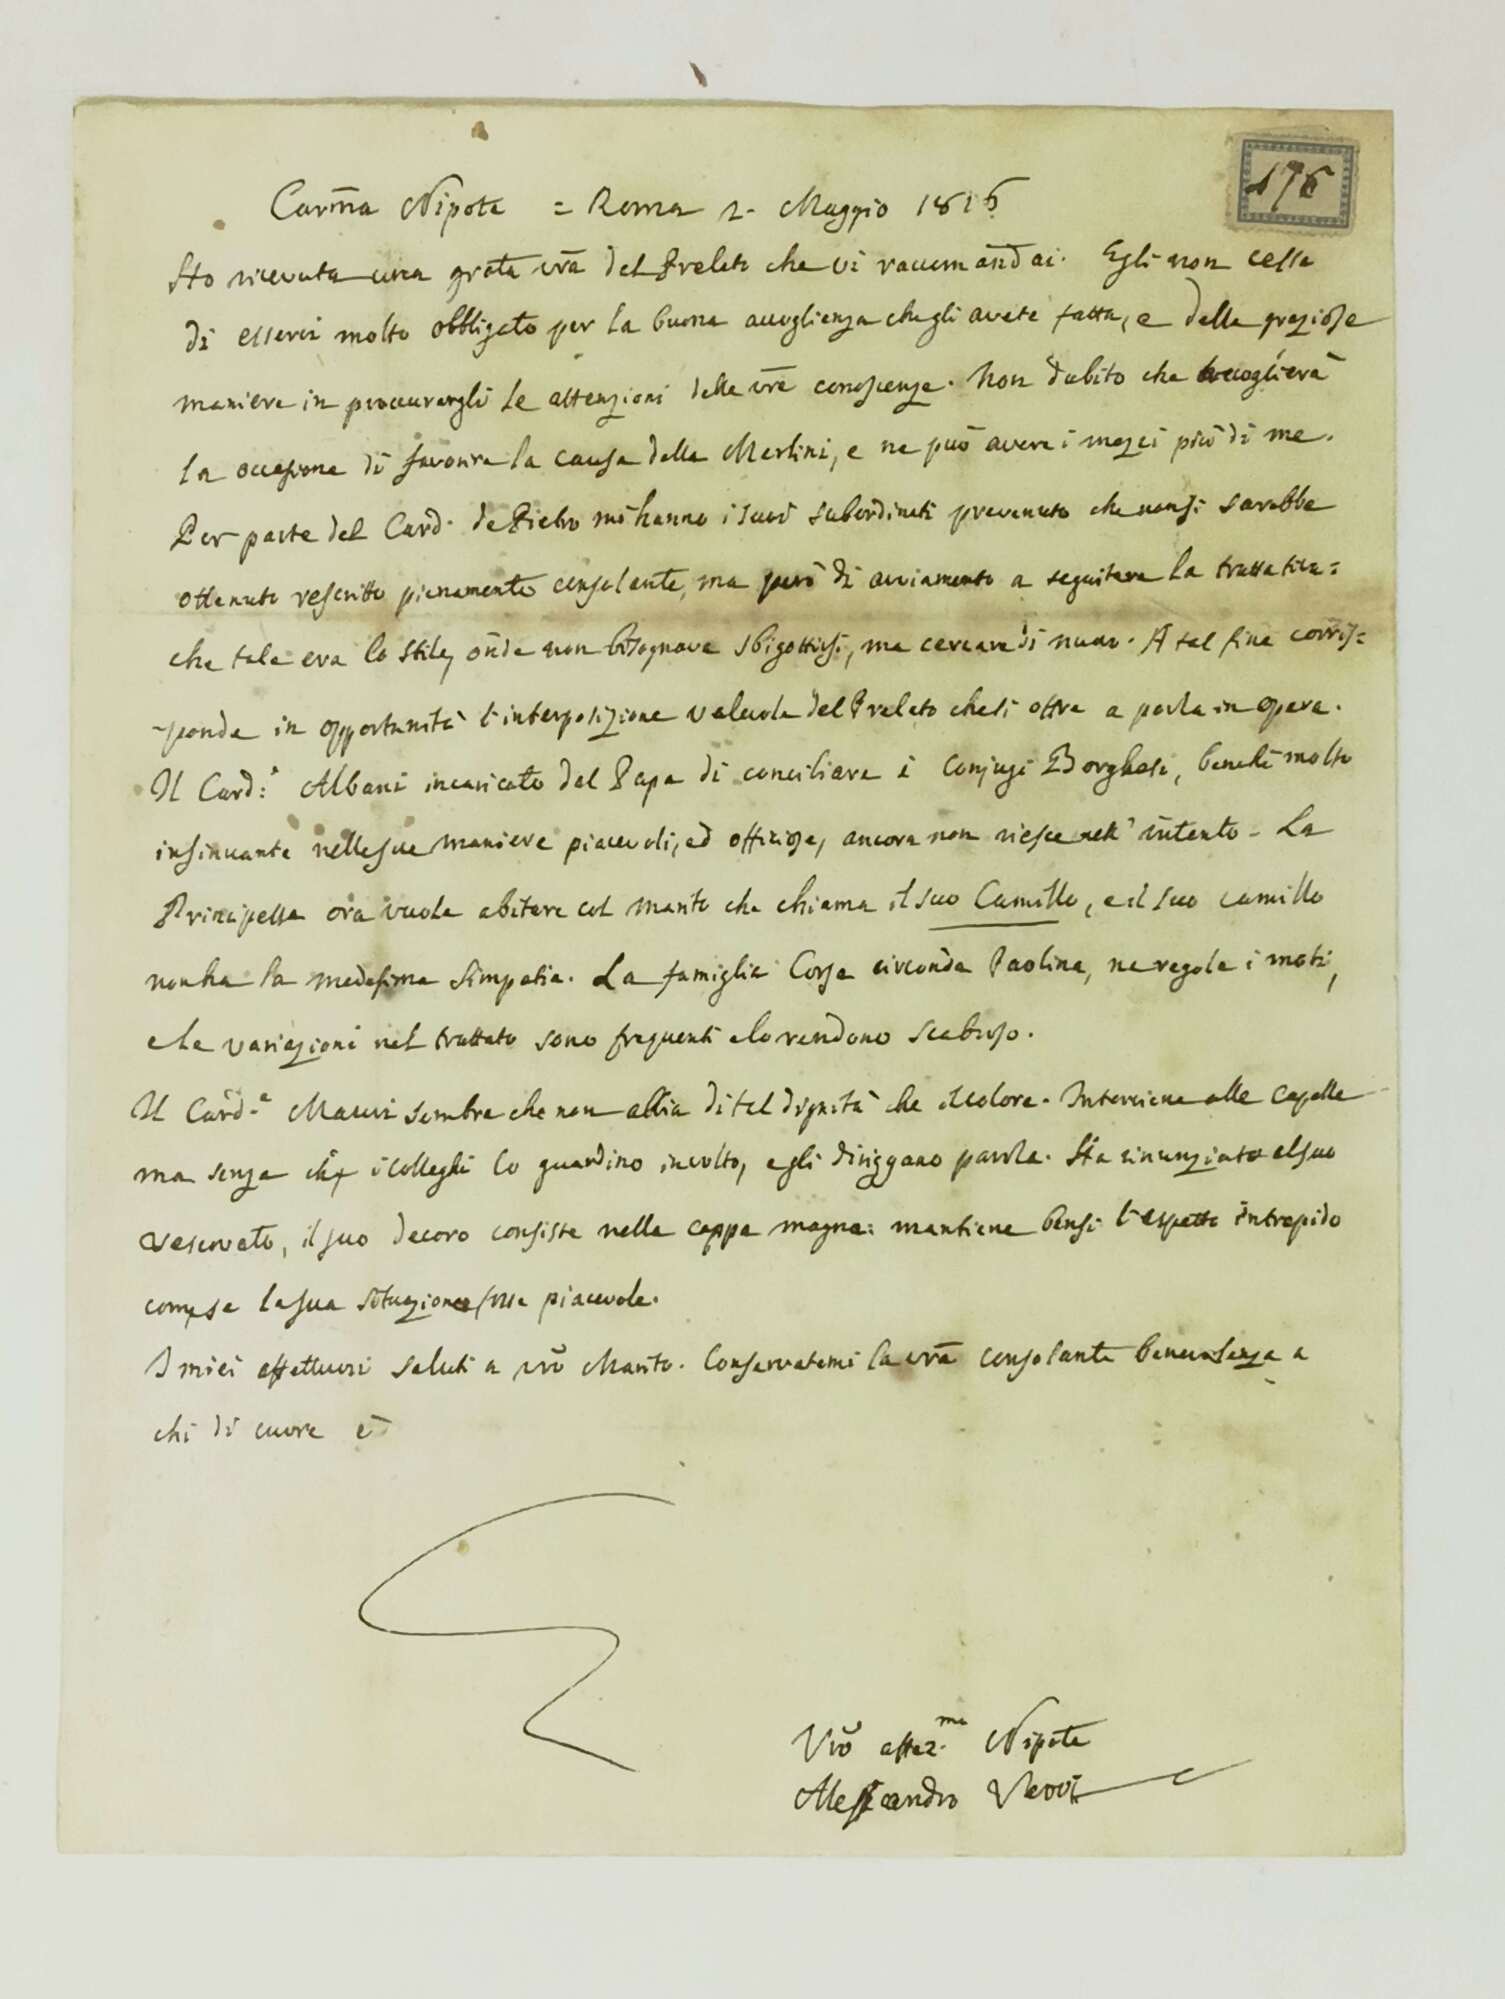 176
Carm̃a Nipote = Roma 2. Maggio 1816
Ho ricevuta una grata vr̃a del Prelato che vi raccomandai. Egli non cessa
di esservi molto obbligato per la buona accoglienza che gli avete fatta, e delle graziose
maniere in procurargli le attenzioni delle vr̃e conoscenze. Non dubito che accoglierà
la occasione di favorire la causa della Merlini, e ne può avere i mezzi più di me.
Per parte del Card. de Pietro mi hanno i suoi subordinati prevenuto che non si sarebbe
ottenuto rescritto pienamente consolante, ma però di avviamento a seguitare la trattativa:
che tale era lo stile, onde non bisognava sbigottirsi, ma cercare di nuovo. A tal fine corris=
ponde in opportunità l'interposizione valevole del Prelato che si offre a porla in opera.
Il Card:ᵉ Albani incaricato dal Papa di conciliare i Conjugi Borghesi, benchè molto
insinuante nelle sue maniere piacevoli, ed offiziose, ancora non riesce nell'intento. La
Principessa ora vuole abitare col marito che chiama il suo Camillo, e il suo camillo
non ha la medesima simpatia. La famiglia Corsa circonda Paolina, ne regola i moti,
e le variazioni nel trattato sono frequenti e lo rendono scabroso.
Il Card.ᵉ Mauri sembra che non abbia di tal dignità che il colore. Interviene alle Capelle
ma senza che i Colleghi lo guardino in volto, e gli diriggano parola. Ha rinunziato al suo
vescovato, il suo decoro consiste nella cappa magna: mantiene bensì l'aspetto intrepido
come se la sua situazione fosse piacevole.
I miei affettuosi saluti a vr̃o Marito. Conservatemi la vr̃a consolante benevolenza a
chi di cuore è
Vr̃o affez.mo Nipote
Alessandro Verri